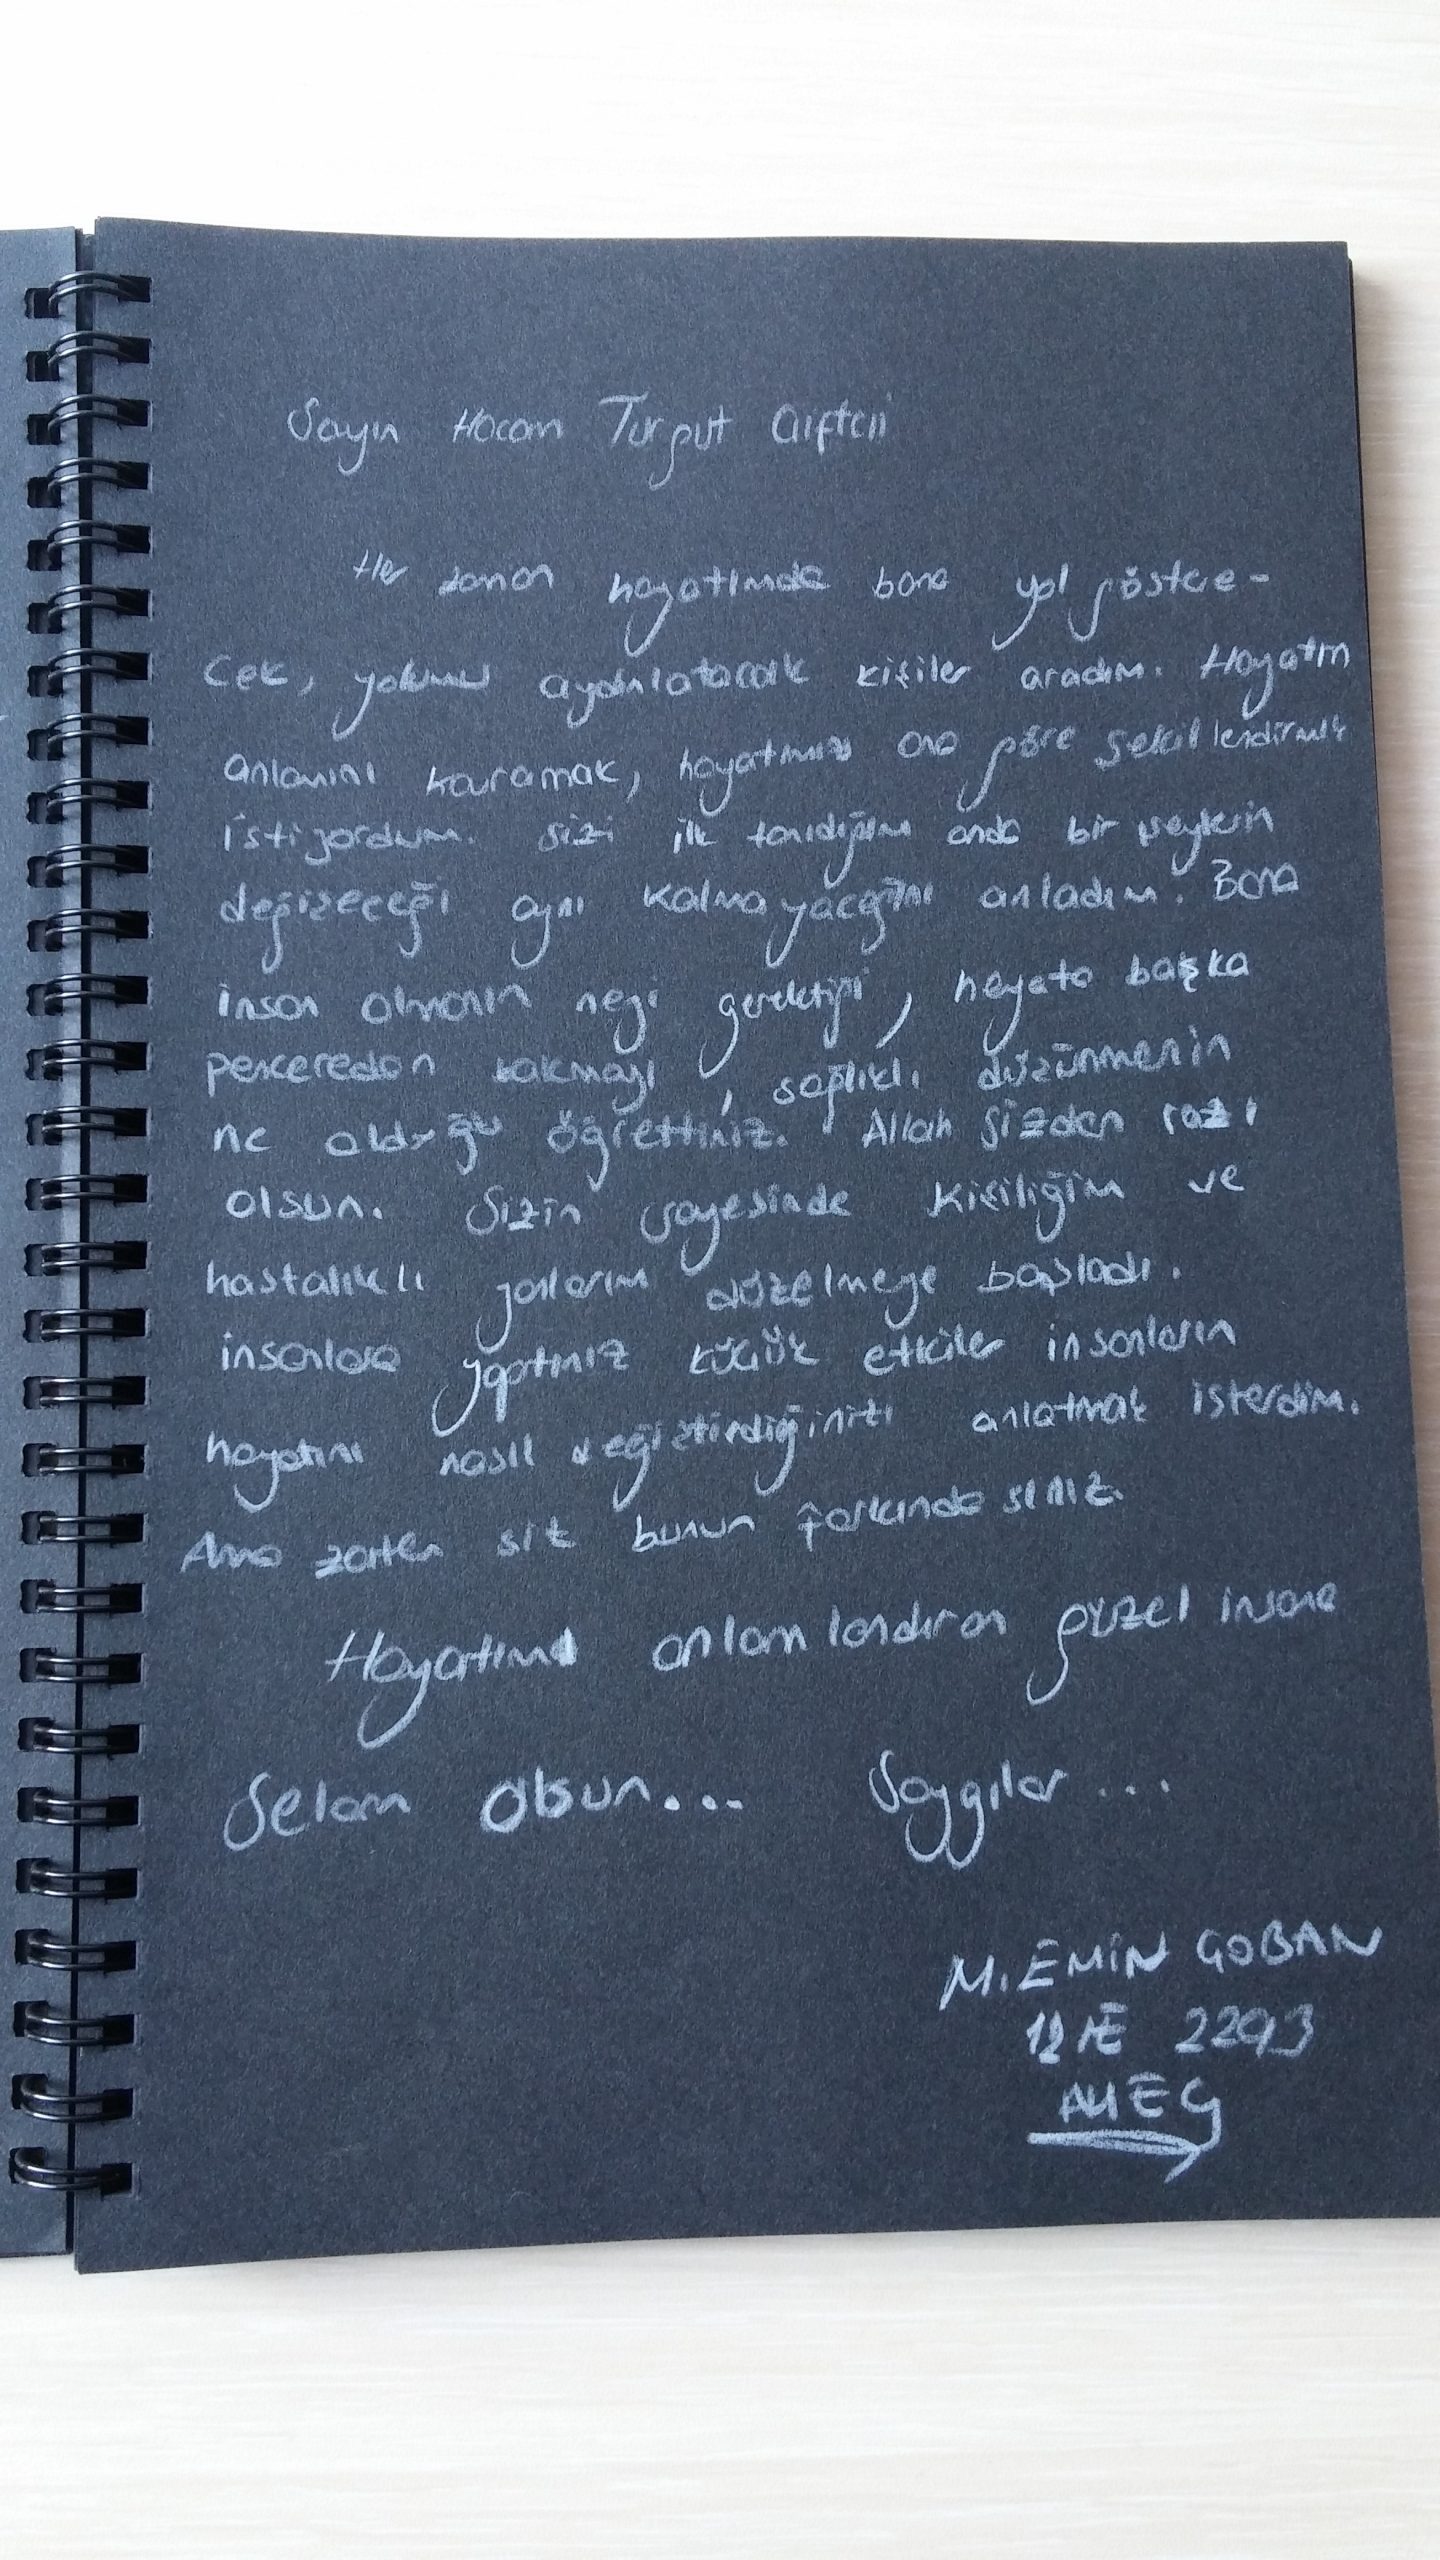 Sayın Hocam Turgut Çiftçi
Her zaman hayatımda bana yol göstere-
cek, yolumu aydınlatacak kişiler aradım. Hayatın
anlamını kavramak, hayatımızı ona göre şekillendirmek
istiyordum. Sizi ilk tanıdığım anda bir şeylerin
değişeceği aynı kalmayacağını anladım. Bana
insan olmanın neyi gerektiği, hayata başka
pencereden bakmayı, sağlıklı düşünmenin
ne olduğu öğrettiniz. Allah sizden razı
olsun. Sizin sayesinde kişiliğim ve
hastalıklı yanlarım düzelmeye başladı.
insanlara yaptınız küçük etkiler insanların
hayatını nasıl değiştirdiğinizi anlatmak isterdim.
Ama zaten siz bunun farkındasınız.
Hayatımı anlamlandıran güzel insana
Selam olsun... Saygılar...
M. EMİN ÇOBAN
12 2293